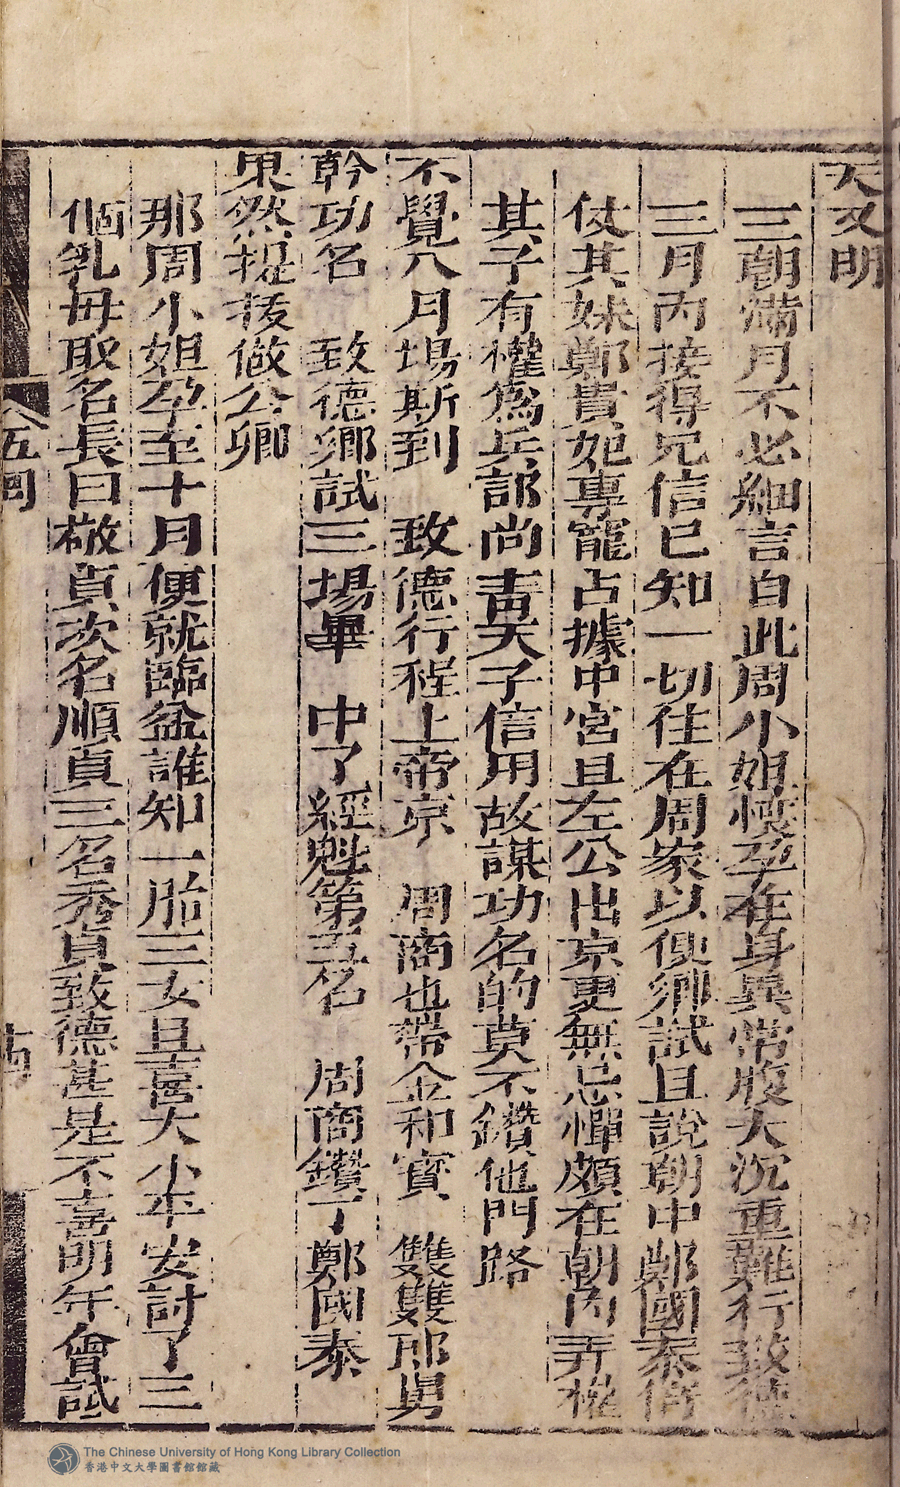 天又明
三朝滿月不必細言自此周小姐懷孕在身異常腹大沉重難行致德
三月內接得兄信已知一切住在周家以便鄉試且說朝中鄭國泰倚
仗其妹鄭貴妃專寵占據中宮且左公出京更無忌憚頗在朝內弄權
其子有權為兵部尚書天子信用故謀功名的莫不鑽他門路
不覺八月場斯到 致德行程上帝京 周商也帶金和寶 雙雙郎舅
幹功名 致德鄉試三場畢 中了經魁第五名 周商鑽了鄭國泰
果然提拔做公卿
那周小姐孕至十月便就臨盆誰知一胎三女且喜大小平安討了三
個乳母取名長曰敬貞次名順貞三名秀貞致德甚是不喜明年會試
五回
十四
The Chinese University of Hong Kong Library Collection
香港中文大學圖書館館藏